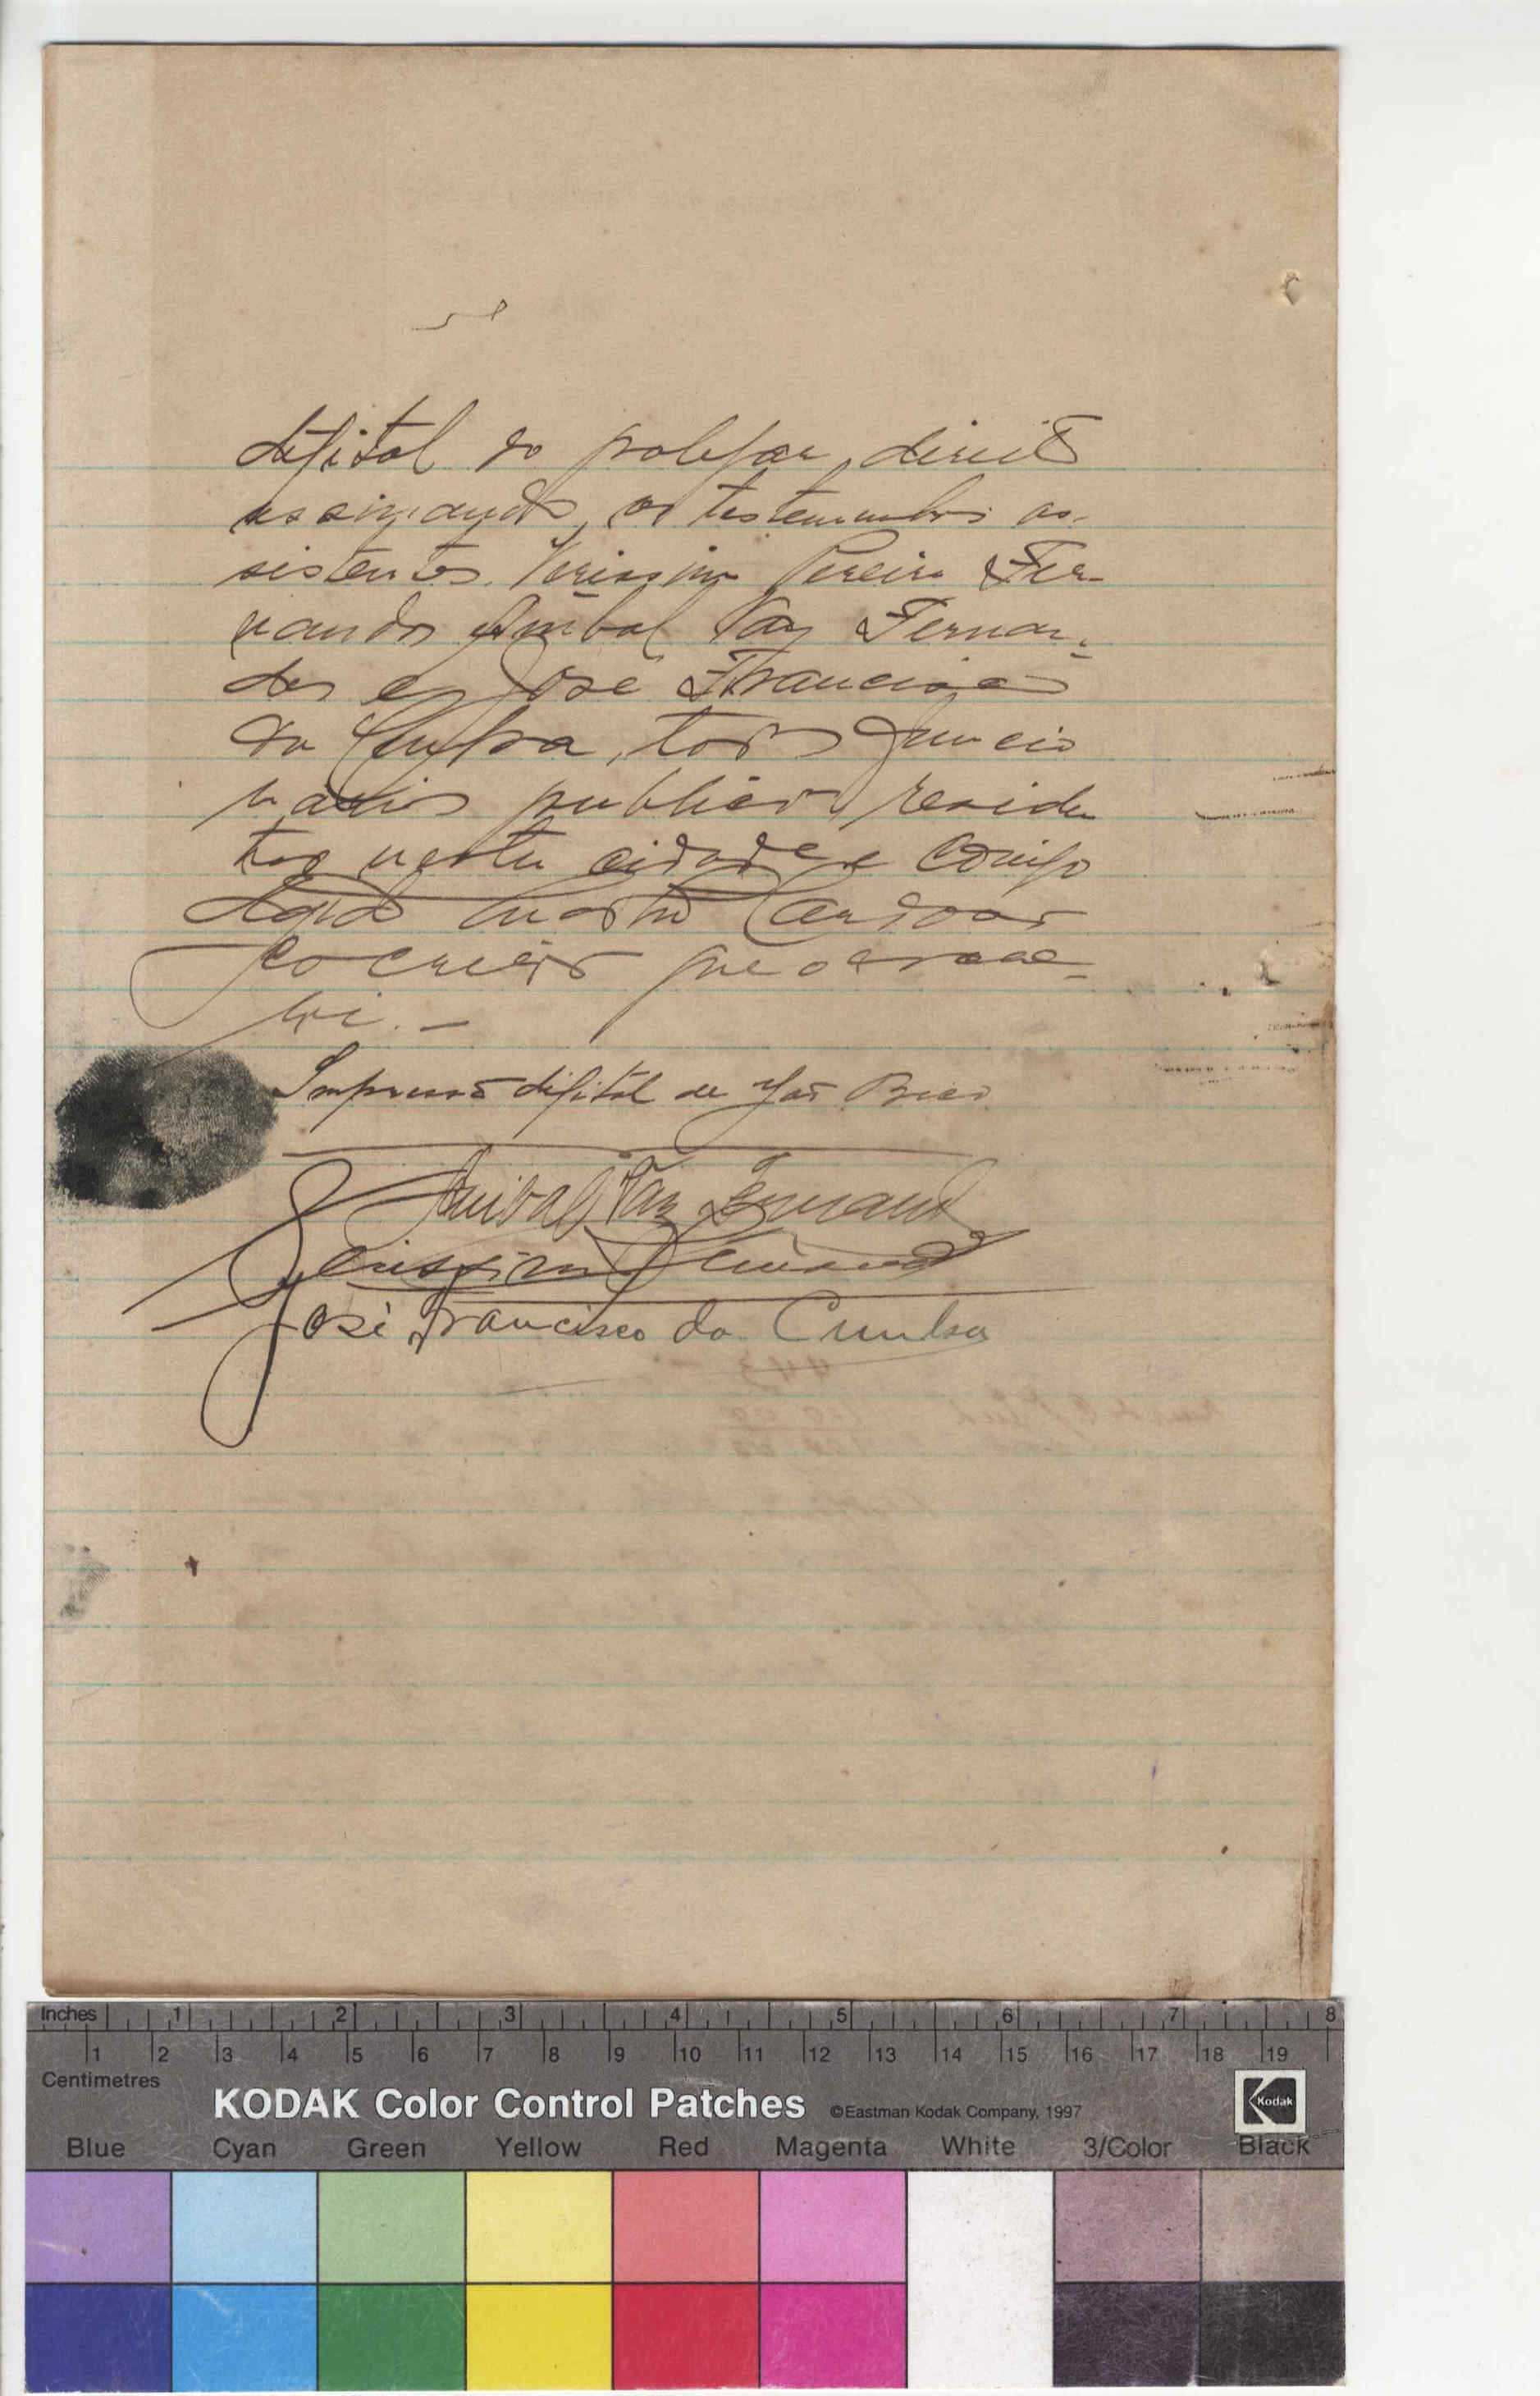 digital do polegar direito
assinando, as testemunhas as-
sistentes. Verissimo Pereira Fer-
nandes Anibal Vaz Fernan-
des e José Francisco
da Cunha, todos funcio
narios publicos residen
tes nesta cidade e comigo
Cardoso
escrivão que o escre-
vi. —
Impressão digital de João Bico
Anibal Vaz Fernandes
Verissimo
José Francisco da Cunha
Inches 1 2 3 4 5 6 7 8
1 2 3 4 5 6 7 8 9 10 11 12 13 14 15 16 17 18 19
Centimetres
KODAK Color Control Patches ©Eastman Kodak Company, 1997 Kodak
Blue Cyan Green Yellow Red Magenta White 3/Color Black